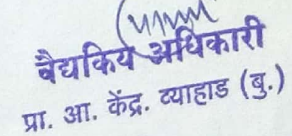 वैद्यकिय अधिकारी
प्रा. आ. केंद्र. व्याहाड (बु.)